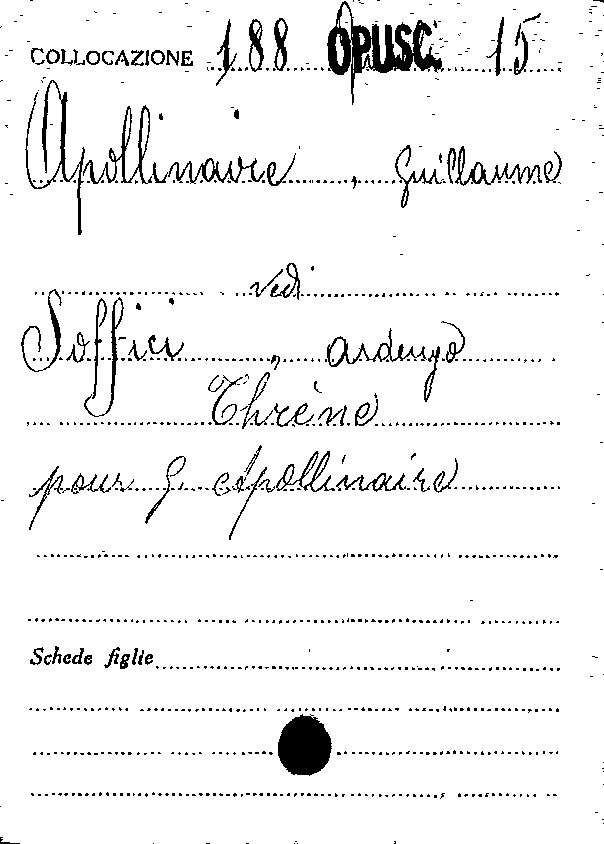 COLLOCAZIONE 188 OPUSC. 15
Apollinaire, Guillaume
vedi
Soffici, Ardengo
Thrène
pour G. Apollinaire
Schede figlie